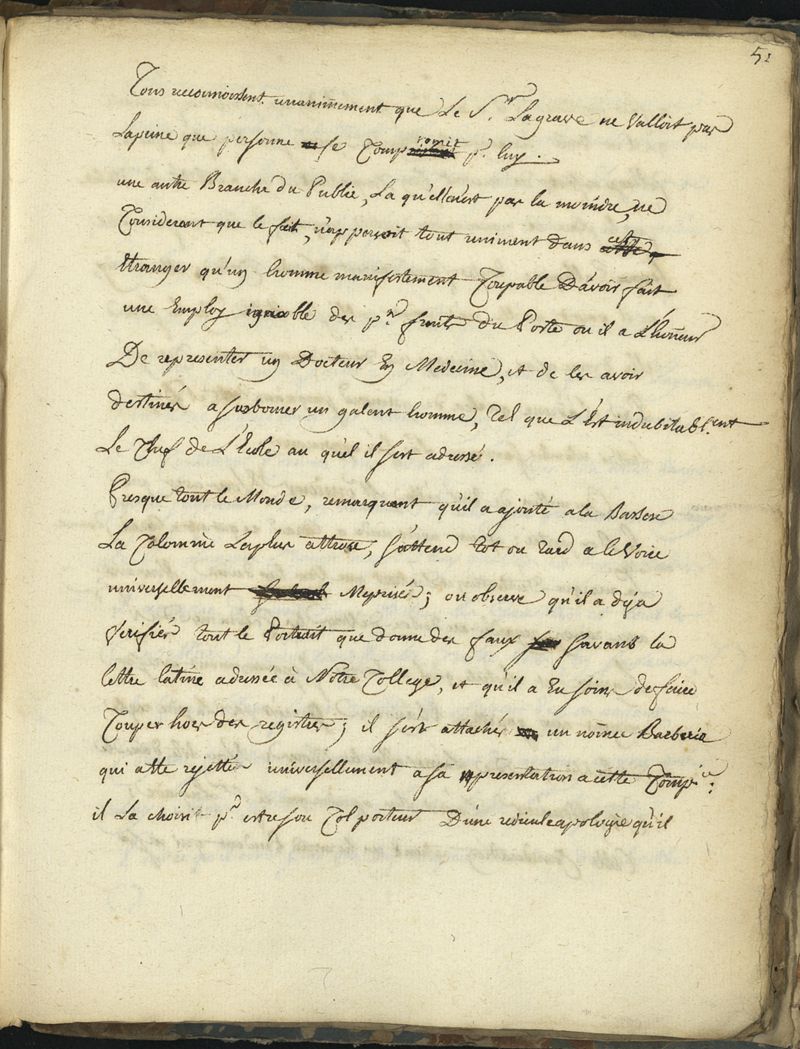 51
Tous reconnoissent unanimement que Le S.r Lagrave ne Valloit pas
Lapeine que personne se Compromit p.r luy.
une autre Branche du Public, La qu'elle n'est pas la moindre, ne
Considerant que le fait, n'apperçoit tout uniment dans cet
Etranger qu'un homme manifestement Coupable D'avoir fait
une Employ ignoble des p.rs fruits du Poste ou il a L'honneur
De representer un Docteur En Medecine, et de les avoir
destinés a suborner un galent homme, Tel que L'Est indubitabl.ent
Le Chef de L'Ecole au quel il s'est adressé.
Presque tout le Monde, remarquant qu'il a ajouté a la Bassesse
La Calomnie Laplus attroce, s'attend tot ou tard a le Voir
universellement Meprisé; on observe qu'il a deja
Verifiér tout le Portrait que donne des faux savants la
lettre latine adressée à Notre College, et qu'il a Eu soins de faire
Couper hors des registres; il s'est attachér un nommé Barberia
qui a ette rejetter universellement a sa representation a cette Comp.ie:
il La choisit p.r estre son Colporteur D'une ridicule apologie qu'il